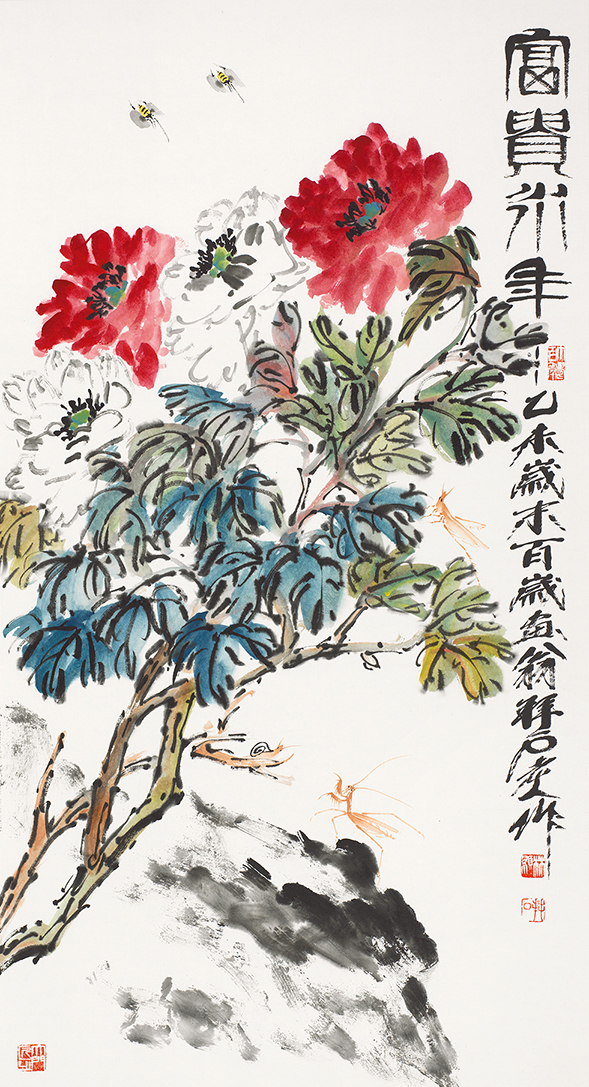 富貴永年
乙未歲末百歲画翁拜石 作